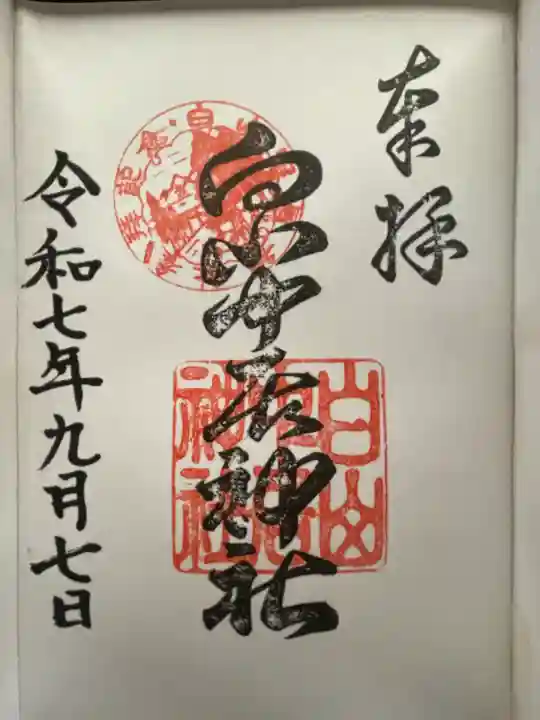 奉拝
白山中居神社
令和七年九月七日
白山
神社